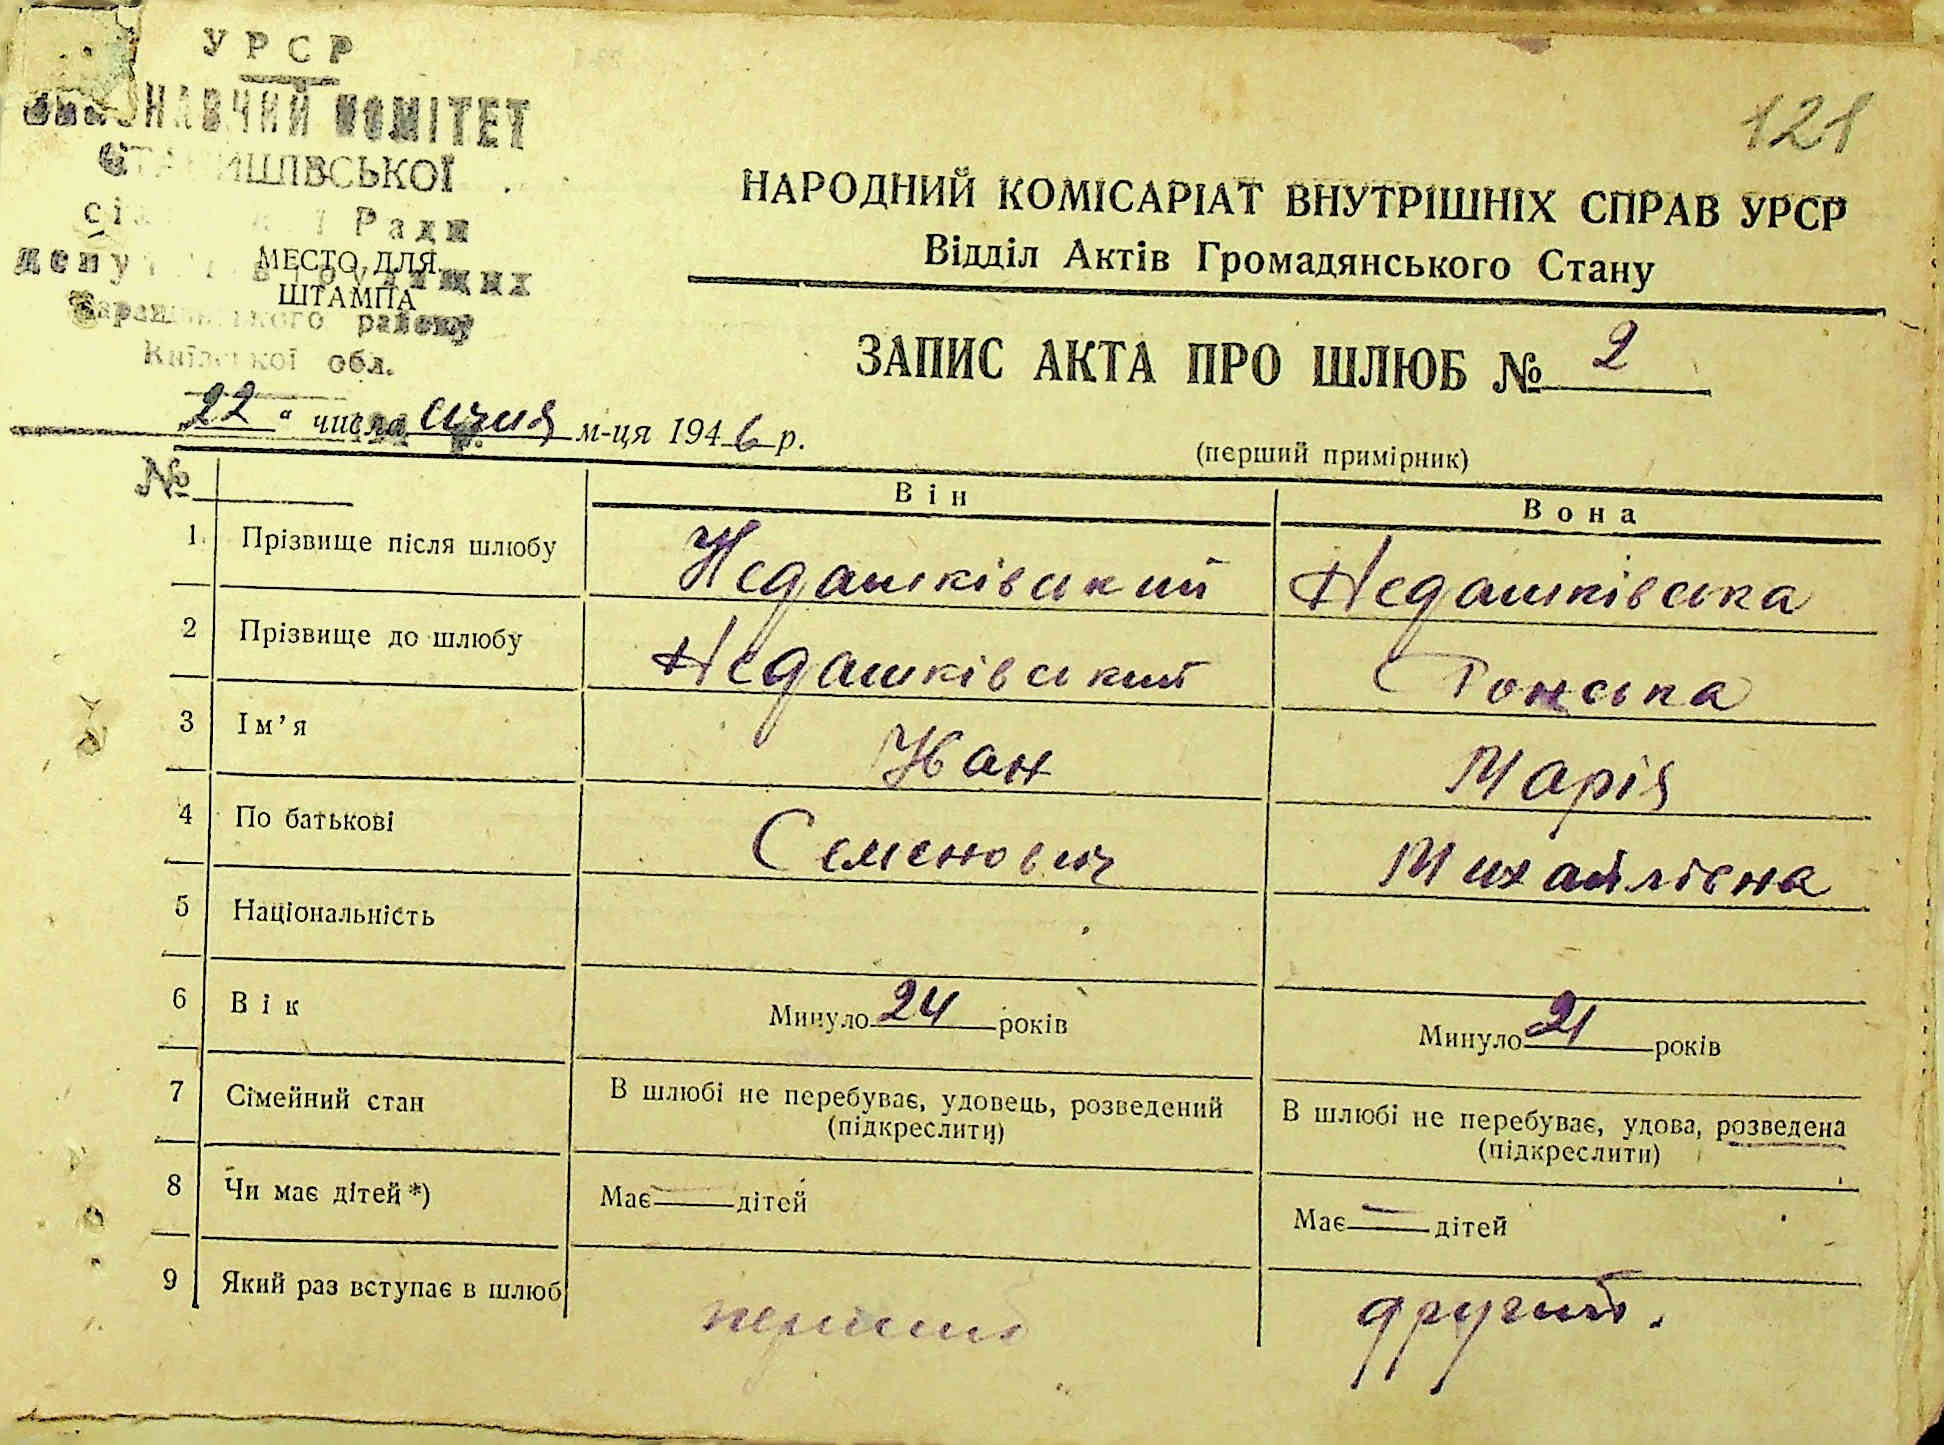 УРСР
ВИКОНАВЧИЙ КОМІТЕТ
СТАВИЩІВСЬКОЇ
Ради
МЕСТО ДЛЯ
ШТАМПА
району
Київської обл.
121
НАРОДНИЙ КОМІСАРІАТ ВНУТРІШНІХ СПРАВ УРСР
Відділ Актів Громадянського Стану
ЗАПИС АКТА ПРО ШЛЮБ № 2
„22“ числа січня м-ця 1946 р.
(перший примірник)
№
Він Вона
1. Прізвище після шлюбу Недашківський Недашківська
2 Прізвище до шлюбу Недашківський Гонська
3 Ім’я Іван Марія
4 По батькові Семенович Михайлівна
5 Національність
6 Вік Минуло 24 років Минуло 21 років
7 Сімейний стан В шлюбі не перебуває, удовець, розведений В шлюбі не перебуває, удова, розведена
(підкреслити) (підкреслити)
8 Чи має дітей*) Має — дітей Має — дітей
9 Який раз вступає в шлюб перший другий.